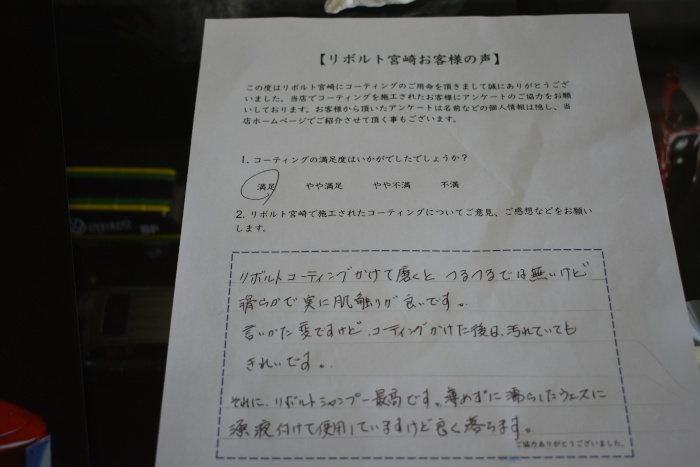 【リボルト宮崎お客様の声】
この度はリボルト宮崎にコーティングのご用命を頂きまして誠にありがとうござ
いました。当店でコーティングを施工されたお客様にアンケートのご協力をお願
いしております。お客様から頂いたアンケートは名前などの個人情報は隠し、当
店ホームページでご紹介させて頂く事もございます。
1. コーティングの満足度はいかがでしたでしょうか？
満足 やや満足 やや不満 不満
2. リボルト宮崎で施工されたコーティングについてご意見、ご感想などをお願い
します。
リボルトコーティングかけて磨くと つるつるでは無いけど
滑らかで実に肌触りが良いです。
言いかた変ですけど、コーティングかけた後は、汚れていても
きれいです。
それに、リボルトシャンプー最高です。薄めずに濡らしたウエスに
源液付けて使用していますけど良く落ちます。
ご協力ありがとうございました。